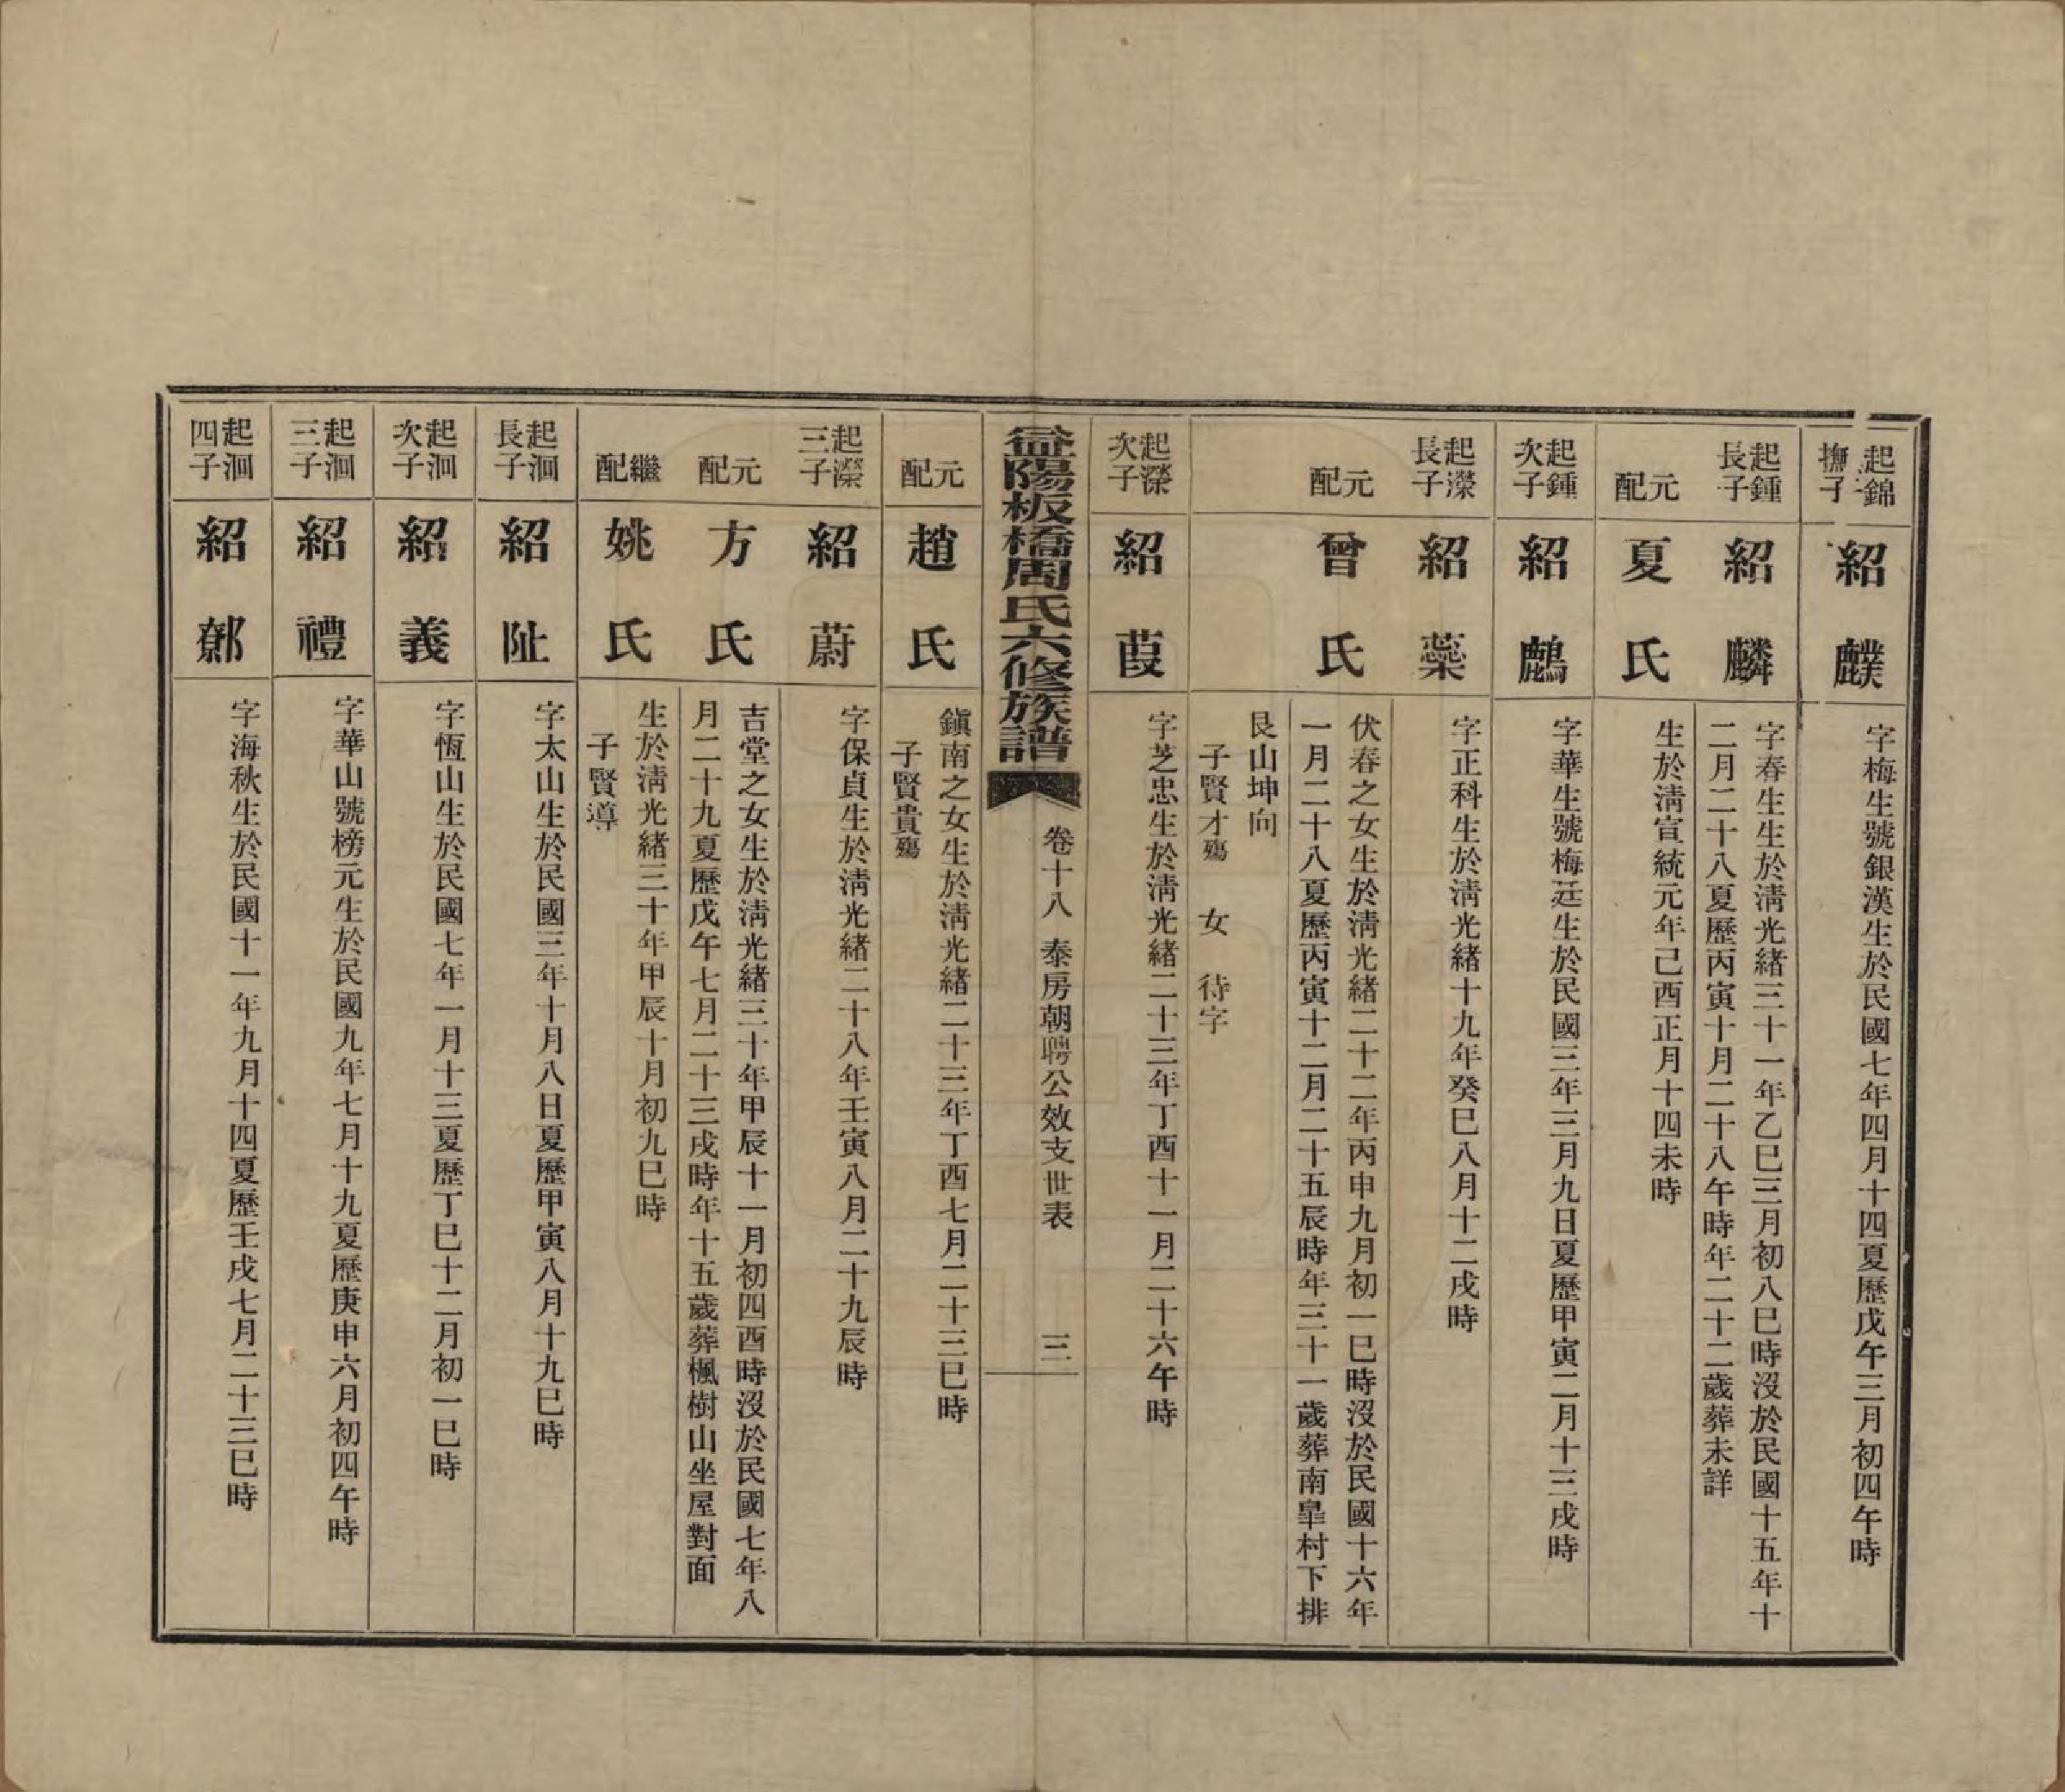 起錦
撫子
紹䴆
字梅生號銀漢生於民國七年四月十四夏歷戊午三月初四午時
起鍾
長子
紹麟
字春生生於淸光緒三十一年乙巳三月初八巳時沒於民國十五年十
二月二十八夏歷丙寅十月二十八午時年二十二歲葬未詳
元配
夏氏
生於淸宣統元年己酉正月十四未時
起鍾
次子
紹鷓
字華生號梅廷生於民國三年三月九日夏歷甲寅二月十三戌時
起濚
長子
紹蘂
字正科生於淸光緒十九年癸巳八月十二戌時
元配
曾氏
伏春之女生於淸光緒二十二年丙申九月初一巳時沒於民國十六年
一月二十八夏歷丙寅十二月二十五辰時年三十一歲葬南皐村下排
艮山坤向
子賢才殤 女 待字
起濚
次子
紹葭
字芝忠生於淸光緒二十三年丁酉十一月二十六午時
益陽板橋周氏六修族譜
卷十八 泰房朝聘公效支世表 三
元配
趙氏
鎭南之女生於淸光緒二十三年丁酉七月二十三巳時
子賢貴殤
起濚
三子
紹蔚
字保貞生於淸光緒二十八年壬寅八月二十九辰時
元配
方氏
吉堂之女生於淸光緒三十年甲辰十一月初四酉時沒於民國七年八
月二十九夏歷戊午七月二十三戌時年十五歲葬楓樹山坐屋對面
繼配
姚氏
生於淸光緒三十年甲辰十月初九巳時
子賢導
起洄
長子
紹阯
字太山生於民國三年十月八日夏歷甲寅八月十九巳時
起洄
次子
紹義
字恆山生於民國七年一月十三夏歷丁巳十二月初一巳時
起洄
三子
紹禮
字華山號榜元生於民國九年七月十九夏歷庚申六月初四午時
起洄
四子
紹鄉
字海秋生於民國十一年九月十四夏歷壬戌七月二十三巳時